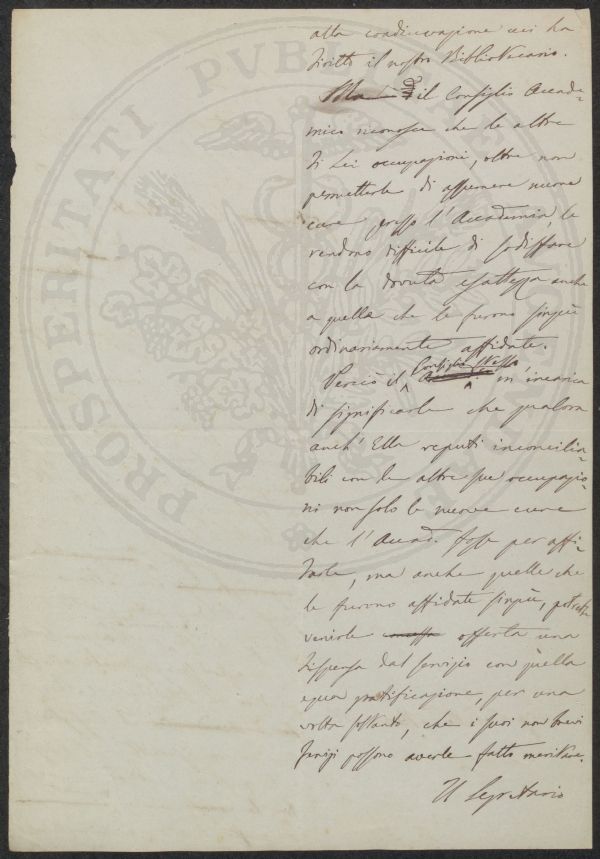 alla coadiuvazione cui ha
diritto il nostro Bibliotecario.
Ma il Consiglio Accade-
mico riconosce che le altre
di Lei occupazioni, oltre non
permetterle di assumere nuove
cure presso l'Accademia, le
rendono difficile di sodisfare
con la dovuta esattezza anche
a quelle che le furono sinquì
ordinariamente affidate.
Perciò il Consiglio stesso m'incarica
di significarle che qualora
anch'Ella reputi inconcilia-
bili con le altre sue occupazio-
ni non solo le nuove cure
che l'Accad. fosse per affi-
darle, ma anche quelle che
le furono affidate sinquì, potrebbe
venirle offerta una
dispensa dal servizio con quella
equa gratificazione, per una
volta soltanto, che i suoi non brevi
servizi possono averle fatto meritare.
Il Segretario
PROSPERITATI PVB